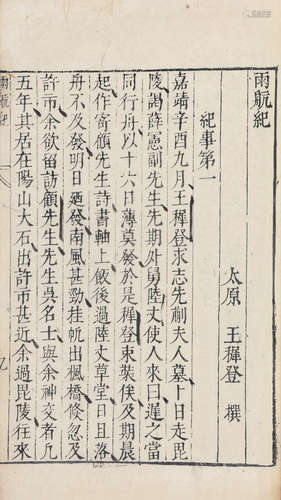 雨航紀
太原 王穉登 撰
紀事第一
嘉靖辛酉九月王穉登求志先嗣夫人墓卜日走毘
陵謁薛憲副先生先期外舅陸丈使人來曰遲之當
同行舟以十六日薄莫發於是穉登束裝俟及期晨
起作寄顧先生詩書軸上飯後過陸丈草堂日且落
舟不及發明日廼發南風甚勁挂帆出楓橋倏忽及
許市余欲留訪顧先生先生吳名士與余神交者凡
五年其居在陽山大石出許市甚近余過毘陵往來
雨航紀